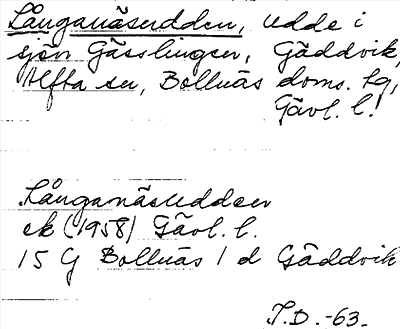 Långanäsudden, udde i
sjön Gässlingen, Gäddvik,
Alfta sn, Bollnäs doms. tg,
Gävl. l.
Långanäsudden
ek (1958) Gävl. l.
15 G Bollnäs 1 d Gäddvik
T.D. -63.